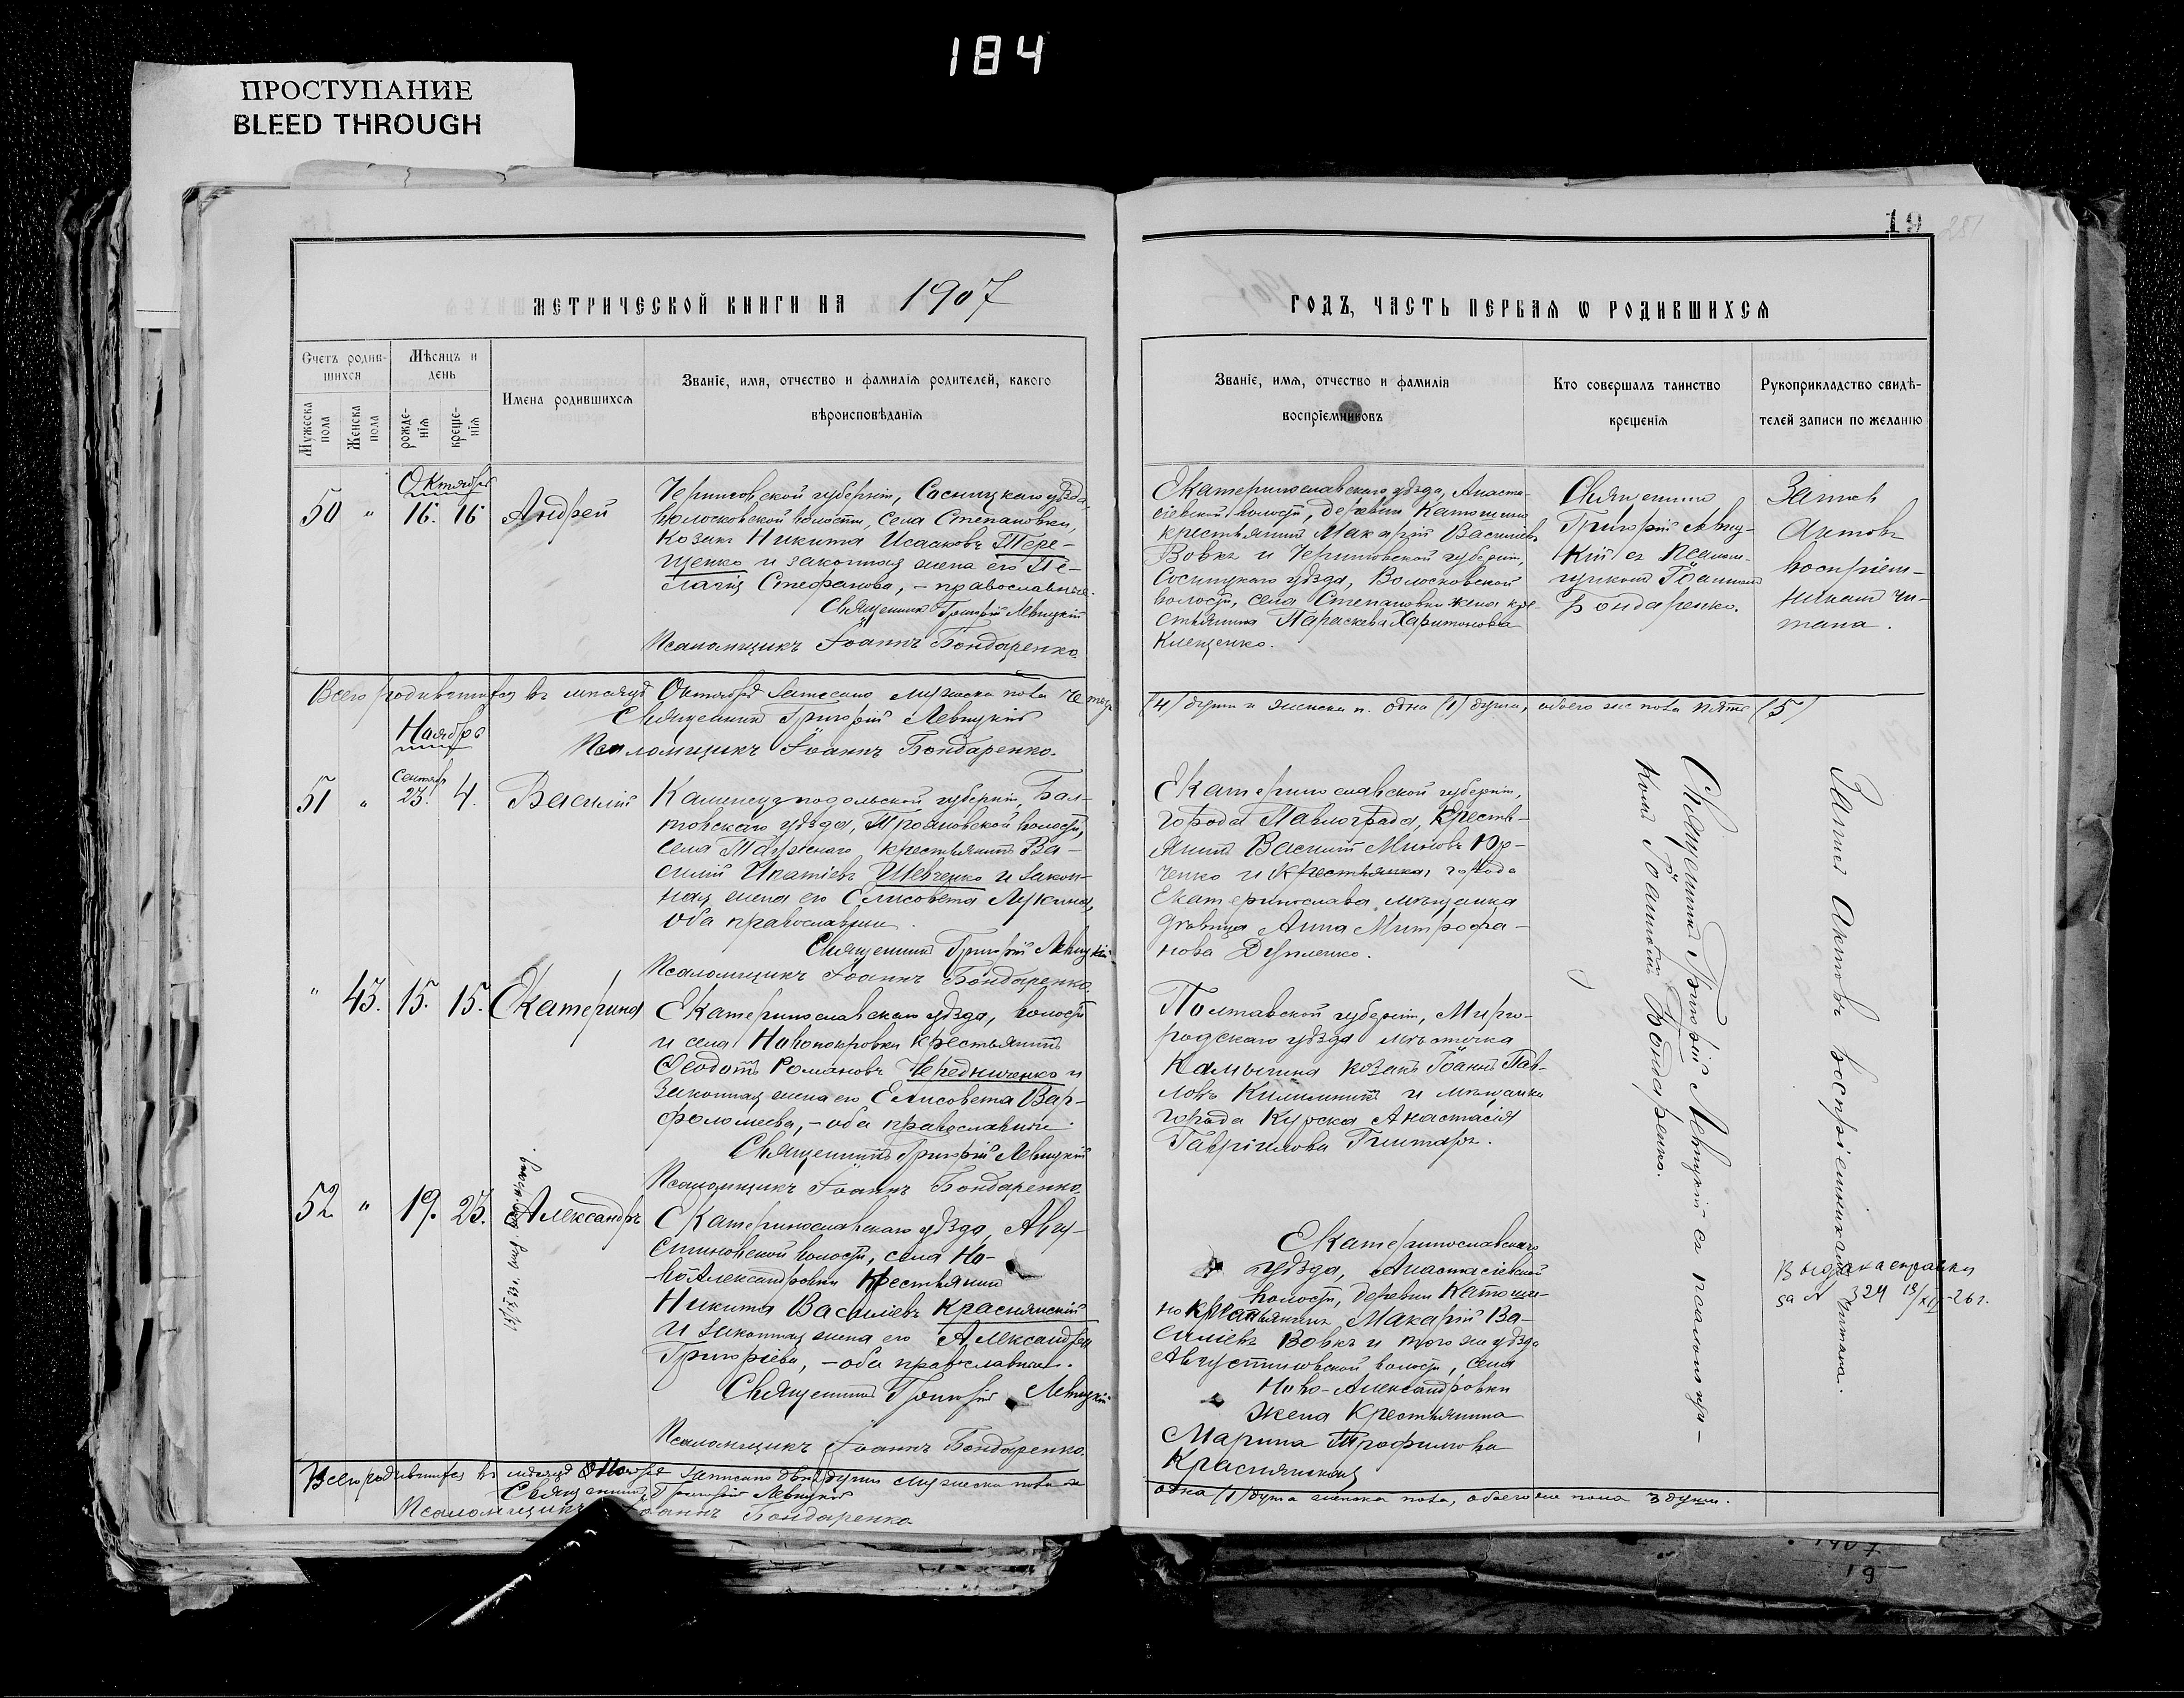 184
ПРОСТУПАНИЕ
BLEED THROUGH
19
МЕТРИЧЕСКОЙ КНИГИ НА 1907
ГОДЪ, ЧАСТЬ ПЕРВАЯ Ѡ РОДИВШИХСЯ
Счетъ родив-
шихся
Мужеска пола
Женска пола
Мѣсяцъ и
день
рожде-
нія
креще-
нія
Имена родившихся
Званіе, имя, отчество и фамилія родителей, какого
вѣроисповѣданія
Званіе, имя, отчество и фамилія
воспріемниковъ
Кто совершалъ таинство
крещенія
Рукоприкладство свидѣ-
телей записи по желанію
Октябрь
50 " 16. 16 Андрей
Черниговской губерніи, Сосницкаго уѣзда,
Волосковской волости, села Степановки,
козакъ Никита Исааковъ Тере-
щенко и законная жена его Пе-
лагія Стефанова, – православные.
Священникъ Григорій Левицкій
Псаломщикъ Іоаннъ Бондаренко.
Екатеринославскаго уѣзда, Анаста-
сіевской волости, деревни
крестьянинъ Макарій Василіевъ
Вовкъ и Черниговской губерніи,
Сосницкаго уѣзда, Волосковской
волости, села Степановки жена кре-
стьянина Параскева Харитонова
Клещенко.
Священникъ
Григорій Левиц-
кій съ псалом-
щикомъ Іоанномъ
Бондаренко.
Запись
актовъ
воспріем-
никамъ чи-
тана.
Всего родившихся въ мѣсяцѣ Октябрѣ записано мужеска пола четыре
(4) души и женска п. одна (1) душа, обоего же пола пять (5)
Священникъ Григорій Левицкій
Псаломщикъ Іоаннъ Бондаренко.
Ноябрь
Сентябр
51 " 23. 4. Василій
Каменецъ подольской губерніи, Бал-
товскаго уѣзда, Трояновской волости,
села крестьянинъ Ва-
силій Игнатіевъ Шевченко и закон-
ная жена его Елисовета Лукина,
оба православны.
Священникъ Григорій Левицкій
Псаломщикъ Іоаннъ Бондаренко.
Екатеринославской губерніи,
города Павлограда, крестья-
нинъ Василій Миновъ Юр-
ченко и крестьянка, города
Екатеринослава мѣщанка
дѣвица Анна Митрофа-
нова
Священникъ Григорій Левицкій съ псаломщи-
комъ Іоанномъ Бондаренко.
Запись актовъ воспріемникамъ читана.
" 43. 15. 15. Екатерина
Екатеринославскаго уѣзда, волости
и села Новопокровки крестьянинъ
Ѳеодотъ Романовъ Чередниченко и
законная жена его Елисовета Вар-
фоломеева, – оба православные.
Священникъ Григорій Левицкій
Псаломщикъ Іоаннъ Бондаренко.
Полтавской губерніи, Мирго-
родскаго уѣзда мѣстечка
козакъ Іоаннъ Пав-
ловъ и мѣщанка
города Курска Анастасія
Гавріилова
52. " 19. 23. Александръ
Екатеринославскаго уѣзда, Авгу-
стиновской волости, села Но-
воАлександровки крестьянинъ
Никита Василіевъ Краснянскій
и законная жена его Александра
Григоріева, – оба православные.
Священникъ Григорій Левицкій
Псаломщикъ Іоаннъ Бондаренко.
Екатеринославскаго
уѣзда, Анастасіевской
волости, деревни
крестьянинъ Макарій Ва-
силіевъ Вовкъ и того же уѣзда
Августиновской волости, села
Ново-Александровки
жена крестьянина
Марина Трофимова
Краснянская
Выдана справка
за № 324 13/XII-26 г.
Всего родившихся въ мѣсяцѣ Ноябрѣ записано двѣ (2) души мужеска пола и
одна (1) душа женска пола, обоего же пола 3 души.
Священникъ Григорій Левицкій
Псаломщикъ Іоаннъ Бондаренко
1907
19